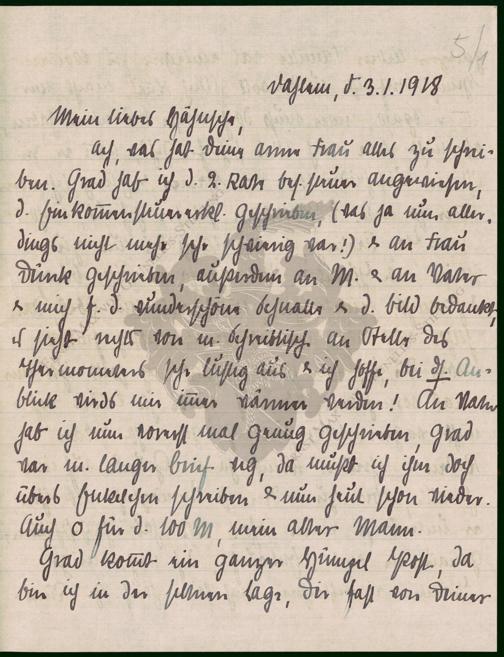 5/1
Dahlem, d. 3.1.1918
Mein liebes Hähnsche,
Ach, was hat deine arme Frau alles zu schrei-
ben. Grad hab ich d. 2. Rate bes. steuer angewiesen,
d. Einkom̄ensteuererkl. geschrieben, (was ja nun aller-
dings nicht mehr sehr schwierig war!) & an Frau
Dünk geschrieben, außerdem an M. & an Vater
& mich f. d. wunderschöne Schnalle & d. Bild bedankt,
es sieht rechts von m. Schreibtisch an Stelle des
Thermometers sehr lustig aus & ich hoffe, bei ds. An-
blick wirds mir im̄er wärmer werden! An Vater
hab ich nun vorerst mal genug geschrieben, grad
war m. langer Brief weg, da mußt ich ihm doch
übers Enkelchen schreiben & nun heut schon wieder.
Auch O für d. 100 M, mein alter Mann.
Grad kom̄t ein ganzer Himpel Post, da
bin ich in der seltnen Lage, Dir fast von Deiner